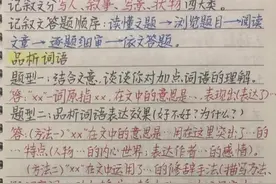 记叙文分写人、叙事、写景、状物四大类。
记叙文答题顺序:读懂文题→浏览题目→阅读
文章→逐题细审→依文答题。
品析词语
题型一:结合文意,谈谈你对加点词语的理解。
答:“××”一词原指××,在文中的意思是…表现(表达)…
题型二:品析词语表达效果(好不好?为什么?)
答:(方法一)“××”在文中的意思是…用在这里突出了…的
…特点(人物…的内心世界,表达作者…的感情)。
(方法二)“××”在文中运用了…的修辞手法(描写方法